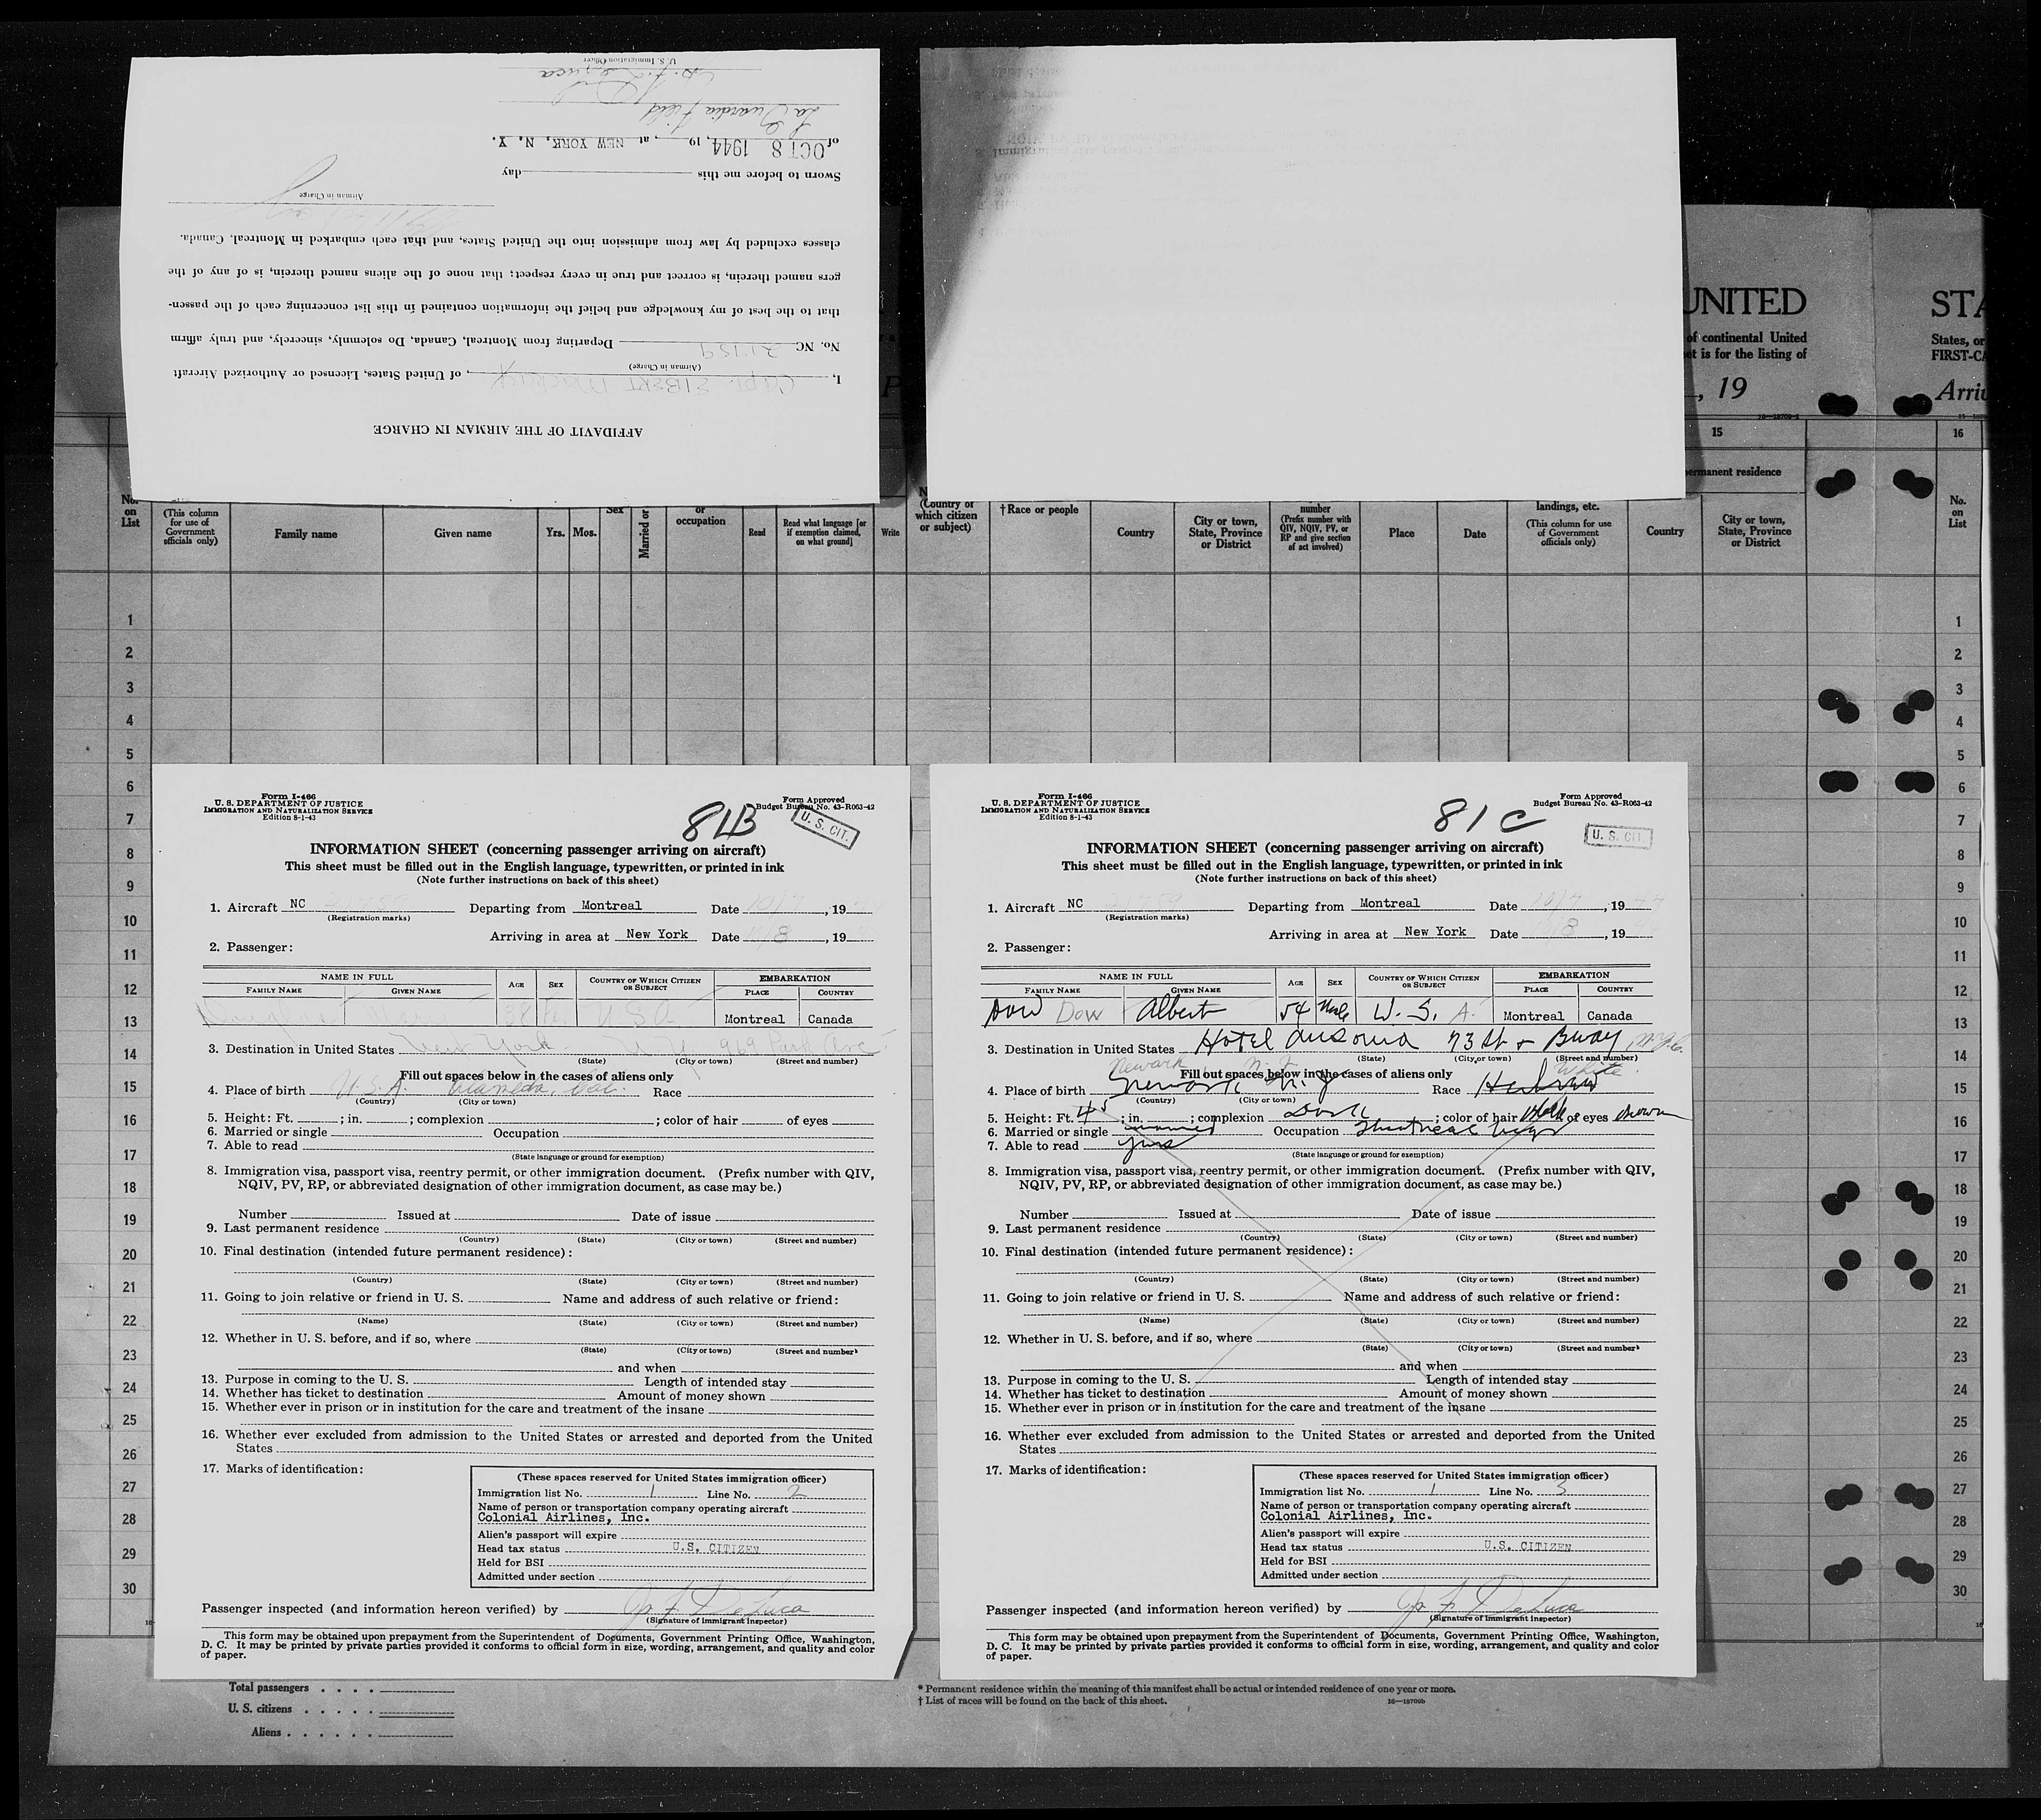 AFFIDAVIT OF THE AIRMAN IN CHARGE
I, Capt. Elbert, of United States, Licensed or Authorized Aircraft
(Airman in Charge)
No. NC 21759 Departing from Montreal, Canada, Do solemnly, sincerely, and truly affirm
that to the best of my knowledge and belief the information contained in this list concerning each of the passen-
gers named therein, is correct and true in every respect; that none of the aliens named therein, is of any of the
classes excluded by law from admission into the United States, and that each embarked in Montreal, Canada.
Airman in Charge
Sworn to before me this day
of OCT 8 1944, 19, at NEW YORK, N. Y.
La Guardia Field
U. S. Immigration Officer
UNITED
STA
of continental United
States, or
et is for the listing of
FIRST-CA
P
, 19
Arriv
15
16
ermanent residence
No. on List
(This column for use of Government officials only)
Family name
Given name
Yrs.
Mos.
Sex
Married or
or occupation
Read
Read what language [or if exemption claimed, on what ground]
Write
(Country of which citizen or subject)
†Race or people
Country
City or town, State, Province or District
number (Prefix number with QIV, NQIV, PV, or RP and give section of act involved)
Place
Date
landings, etc.
(This column for use of Government officials only)
Country
City or town, State, Province or District
No. on List
1
2
3
4
5
6
7
8
9
10
11
12
13
14
15
16
17
18
19
20
21
22
23
24
25
26
27
28
29
30
1
2
3
4
5
6
7
8
9
10
11
12
13
14
15
16
17
18
19
20
21
22
23
24
25
26
27
28
29
30
Form I-466
U. S. DEPARTMENT OF JUSTICE
IMMIGRATION AND NATURALIZATION SERVICE
Edition 8-1-43
81B
Form Approved
Budget Bureau No. 43-R063-42
U. S. CIT.
INFORMATION SHEET (concerning passenger arriving on aircraft)
This sheet must be filled out in the English language, typewritten, or printed in ink
(Note further instructions on back of this sheet)
1. Aircraft NC Departing from Montreal Date 10/7, 19
(Registration marks)
Arriving in area at New York Date 8, 19
2. Passenger:
NAME IN FULL
AGE
SEX
COUNTRY OF WHICH CITIZEN OR SUBJECT
EMBARKATION
FAMILY NAME
GIVEN NAME
PLACE
COUNTRY
Douglas 38 USA Montreal Canada
3. Destination in United States New York N Y 969 Park Ave
(State) (City or town) (Street and number)
Fill out spaces below in the cases of aliens only
4. Place of birth U.S.A. Alameda, Cal. Race
(Country) (City or town)
5. Height: Ft. ; in. ; complexion ; color of hair of eyes
6. Married or single Occupation
7. Able to read
(State language or ground for exemption)
8. Immigration visa, passport visa, reentry permit, or other immigration document. (Prefix number with QIV,
NQIV, PV, RP, or abbreviated designation of other immigration document, as case may be.)
Number Issued at Date of issue
9. Last permanent residence
(Country) (State) (City or town) (Street and number)
10. Final destination (intended future permanent residence):
(Country) (State) (City or town) (Street and number)
11. Going to join relative or friend in U. S. Name and address of such relative or friend:
(Name) (State) (City or town) (Street and number)
12. Whether in U. S. before, and if so, where
(State) (City or town) (Street and number)
and when
13. Purpose in coming to the U. S. Length of intended stay
14. Whether has ticket to destination Amount of money shown
15. Whether ever in prison or in institution for the care and treatment of the insane
16. Whether ever excluded from admission to the United States or arrested and deported from the United
States
17. Marks of identification:
(These spaces reserved for United States immigration officer)
Immigration list No. 1 Line No. 2
Name of person or transportation company operating aircraft
Colonial Airlines, Inc.
Alien's passport will expire
Head tax status U.S. CITIZEN
Held for BSI
Admitted under section
Passenger inspected (and information hereon verified) by Jo F DeLuca
(Signature of immigrant inspector)
This form may be obtained upon prepayment from the Superintendent of Documents, Government Printing Office, Washington,
D. C. It may be printed by private parties provided it conforms to official form in size, wording, arrangement, and quality and color
of paper.
Form I-466
U. S. DEPARTMENT OF JUSTICE
IMMIGRATION AND NATURALIZATION SERVICE
Edition 8-1-43
81C
Form Approved
Budget Bureau No. 43-R063-42
U. S. CIT.
INFORMATION SHEET (concerning passenger arriving on aircraft)
This sheet must be filled out in the English language, typewritten, or printed in ink
(Note further instructions on back of this sheet)
1. Aircraft NC Departing from Montreal Date 10/7, 1944
(Registration marks)
Arriving in area at New York Date 8, 19
2. Passenger:
NAME IN FULL
AGE
SEX
COUNTRY OF WHICH CITIZEN OR SUBJECT
EMBARKATION
FAMILY NAME
GIVEN NAME
PLACE
COUNTRY
Dow Dow Albert 54 Male U. S. A. Montreal Canada
3. Destination in United States Hotel Ansonia 73 St + Bway N.Y.C.
(State) (City or town) (Street and number)
Newark N. J.
Fill out spaces below in the cases of aliens only
White
4. Place of birth Newark N. J Race Hebrew
(Country) (City or town)
5. Height: Ft. 4 5; in. ; complexion Dark; color of hair Black of eyes Brown
6. Married or single married Occupation Theatrical Mgr
7. Able to read yes
(State language or ground for exemption)
8. Immigration visa, passport visa, reentry permit, or other immigration document. (Prefix number with QIV,
NQIV, PV, RP, or abbreviated designation of other immigration document, as case may be.)
Number Issued at Date of issue
9. Last permanent residence
(Country) (State) (City or town) (Street and number)
10. Final destination (intended future permanent residence):
(Country) (State) (City or town) (Street and number)
11. Going to join relative or friend in U. S. Name and address of such relative or friend:
(Name) (State) (City or town) (Street and number)
12. Whether in U. S. before, and if so, where
(State) (City or town) (Street and number)
and when
13. Purpose in coming to the U. S. Length of intended stay
14. Whether has ticket to destination Amount of money shown
15. Whether ever in prison or in institution for the care and treatment of the insane
16. Whether ever excluded from admission to the United States or arrested and deported from the United
States
17. Marks of identification:
(These spaces reserved for United States immigration officer)
Immigration list No. 1 Line No. 3
Name of person or transportation company operating aircraft
Colonial Airlines, Inc.
Alien's passport will expire
Head tax status U.S. CITIZEN
Held for BSI
Admitted under section
Passenger inspected (and information hereon verified) by Jo F DeLuca
(Signature of immigrant inspector)
This form may be obtained upon prepayment from the Superintendent of Documents, Government Printing Office, Washington,
D. C. It may be printed by private parties provided it conforms to official form in size, wording, arrangement, and quality and color
of paper.
Total passengers
U. S. citizens
Aliens
* Permanent residence within the meaning of this manifest shall be actual or intended residence of one year or more.
† List of races will be found on the back of this sheet.
16—18709b